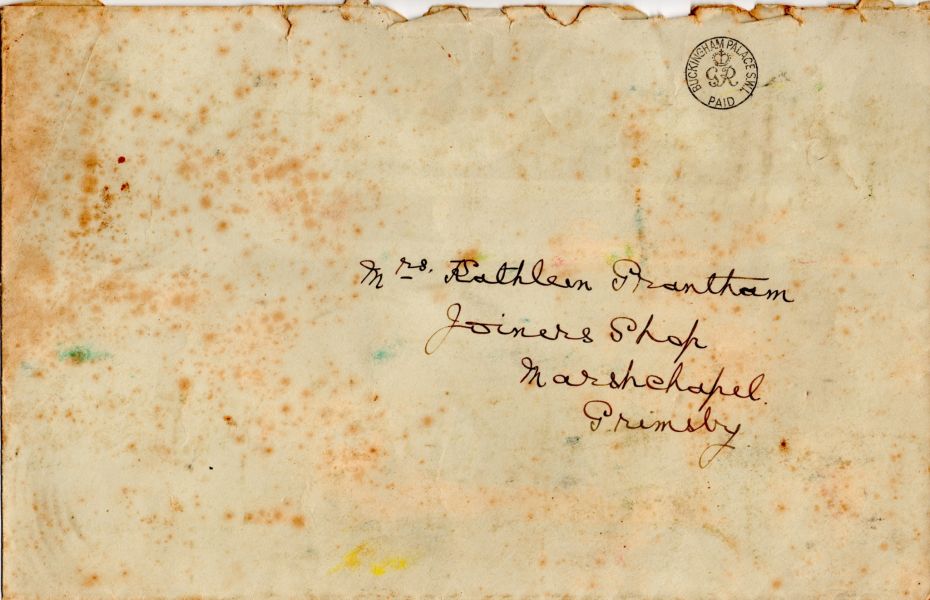 BUCKINGHAM PALACE S.W.1.
GR
PAID
Mrs. Kathleen Grantham
Joiners Shop
Marshchapel.
Grimsby